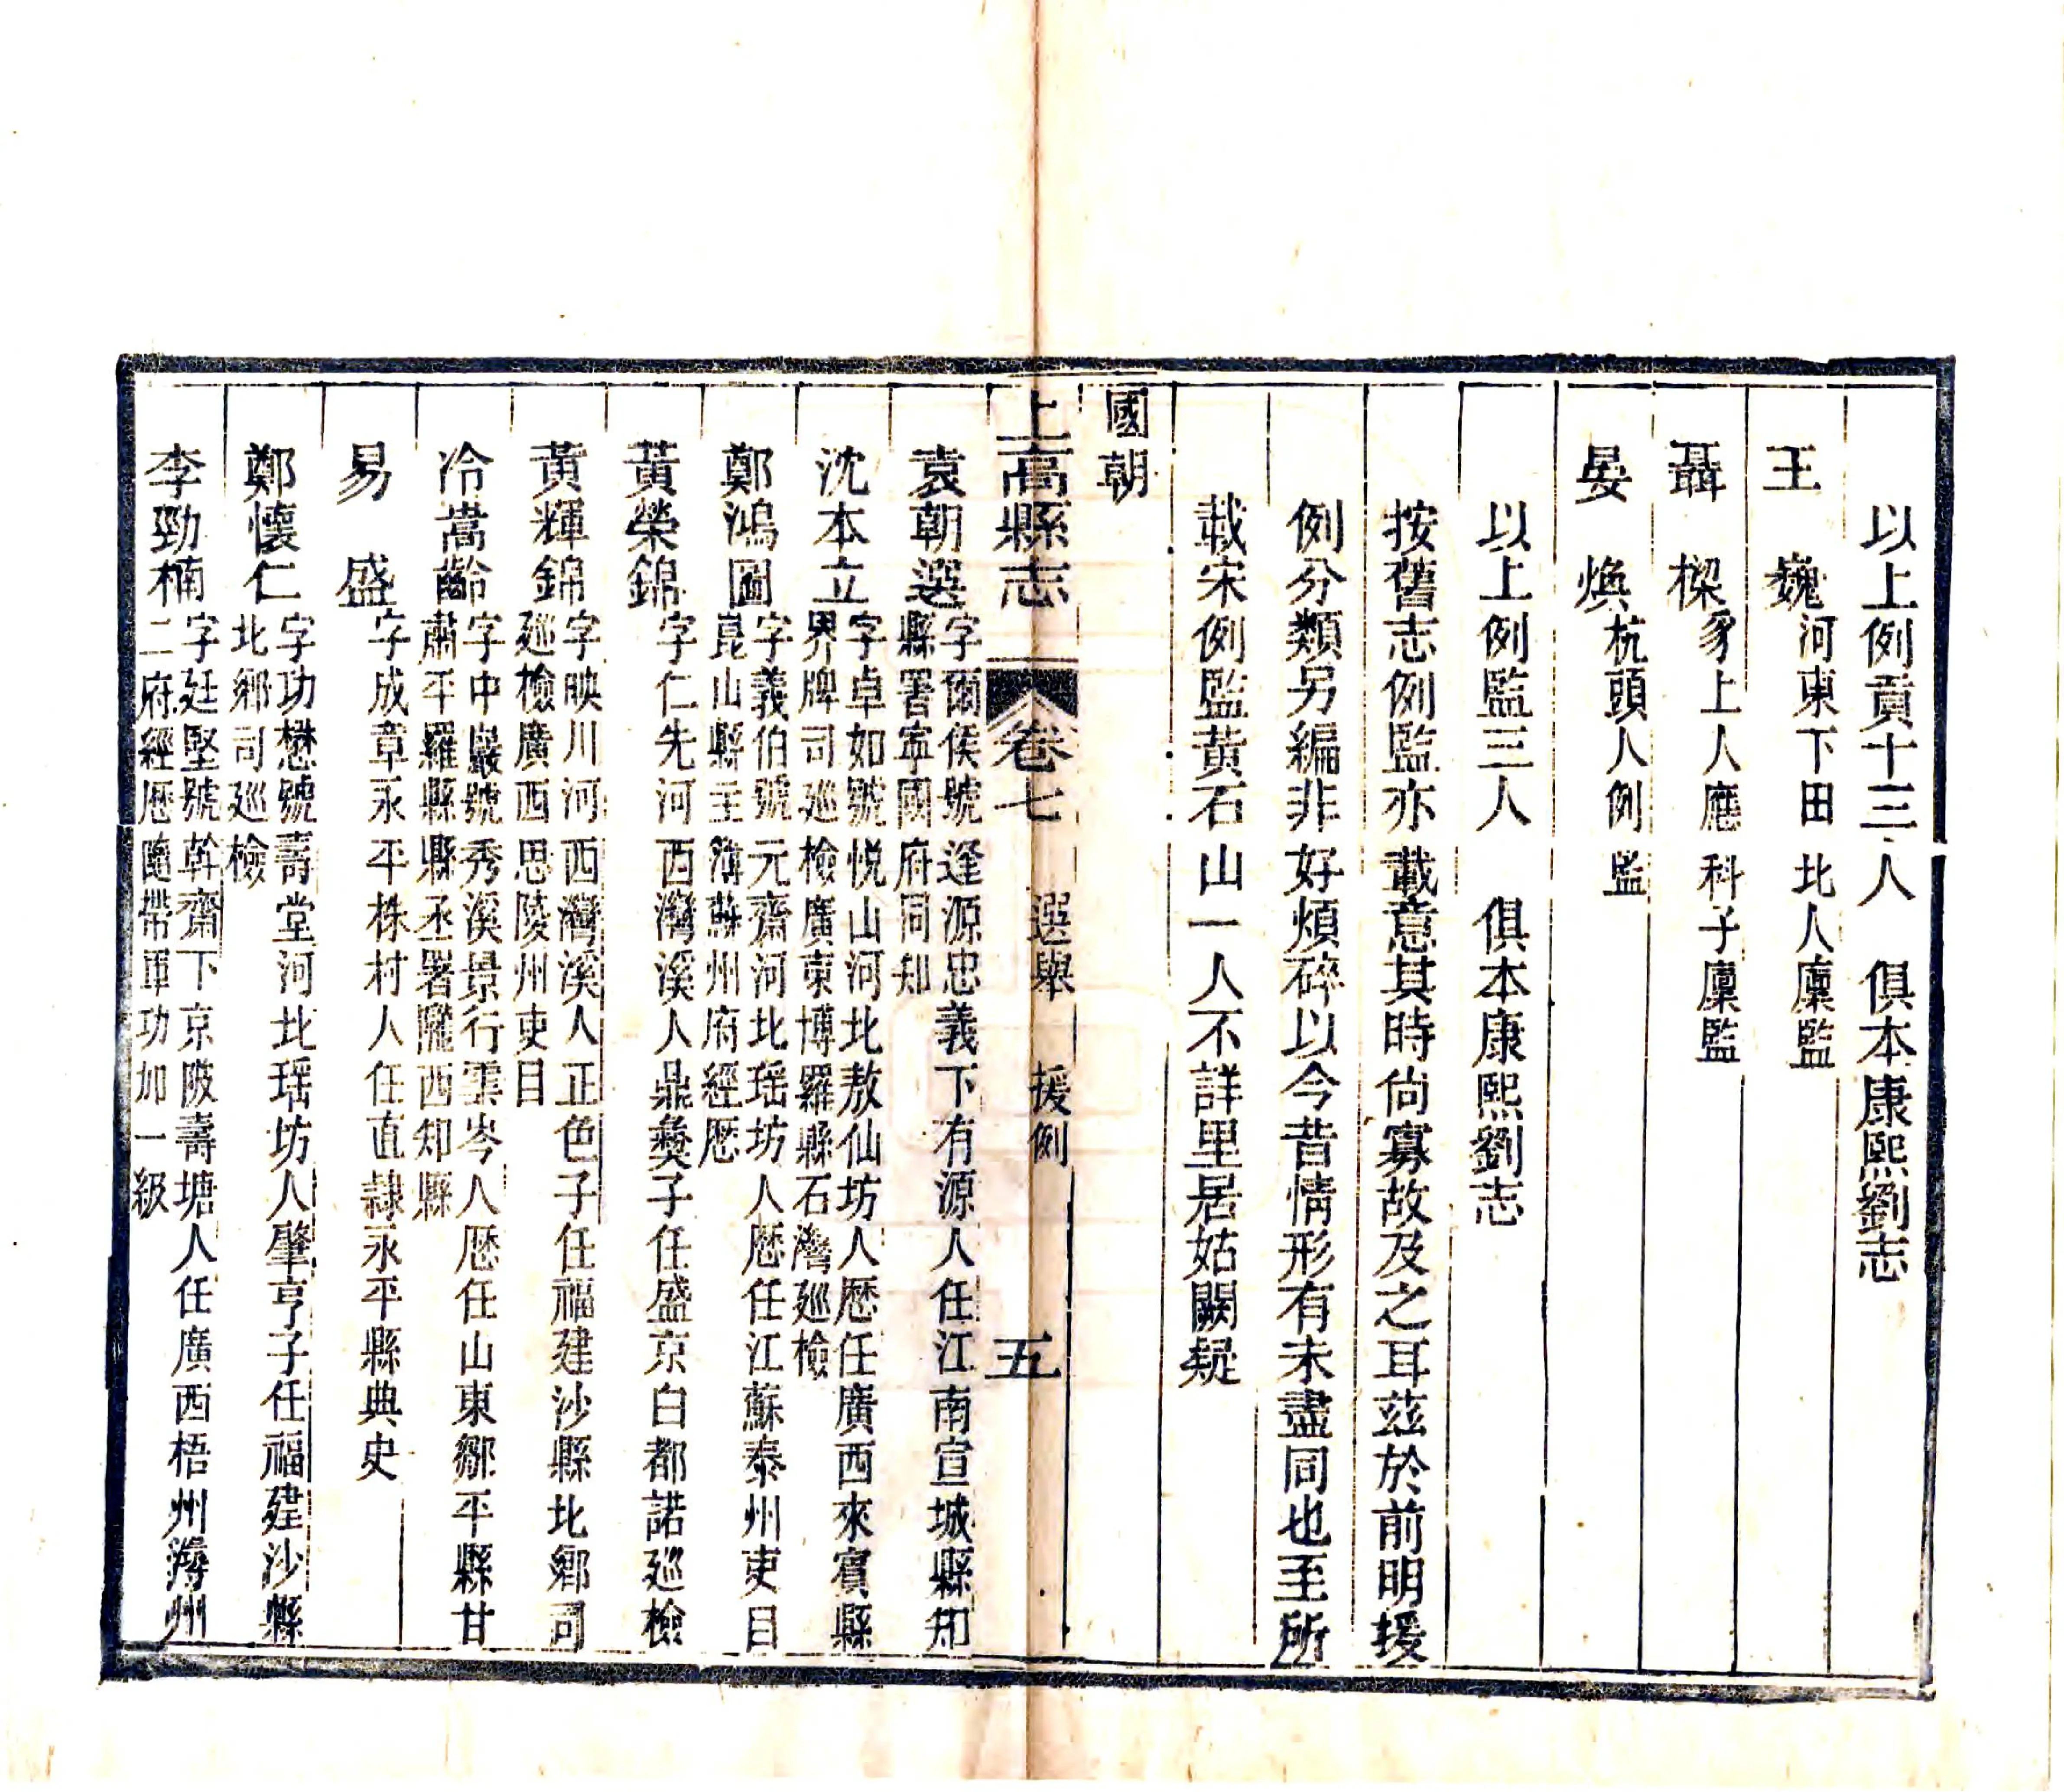 以上例貢十三人　俱本康熙劉志
王　巍河東下田北人廩監
聶　樑豸上人應科子廩監
晏　煥杭頭人例監
以上例監三人　俱本康熙劉志
按舊志例監亦載意其時尚寡故及之耳茲於前明援
例分類另編非好煩碎以今昔情形有未盡同也至所
載宋例監黃石山一人不詳里居姑闕疑
國朝
上高縣志　卷七　選舉　援例　五
袁朝選字爾侯號逢源忠義下有源人任江南宣城縣知
縣署寧國府同知
沈本立字卓如號悅山河北敖仙坊人歷任廣西來賓縣
界牌司廵檢廣東博羅縣石灣廵檢
鄭鴻圖字義伯號元齋河北瑶坊人歷任江蘇泰州吏目
崑山縣主簿蘇州府經歷
黃榮錦字仁先河西灣溪人鼎彝子任盛京白都諾廵檢
黃輝錦字映川河西灣溪人正色子任福建沙縣北鄉司
廵檢廣西思陵州吏目
冷嵩齡字中巖號秀溪景行雲岑人歷任山東鄒平縣甘
肅平羅縣縣丞署隴西知縣
易　盛字成章永平株村人任直隸永平縣典史
鄭懷仁字功懋號壽堂河北瑶坊人肇亨子任福建沙縣
北鄉司廵檢
李勁楠字廷堅號幹齋下京陂壽塘人任廣西梧州潯州
二府經歷隨帶軍功加一級